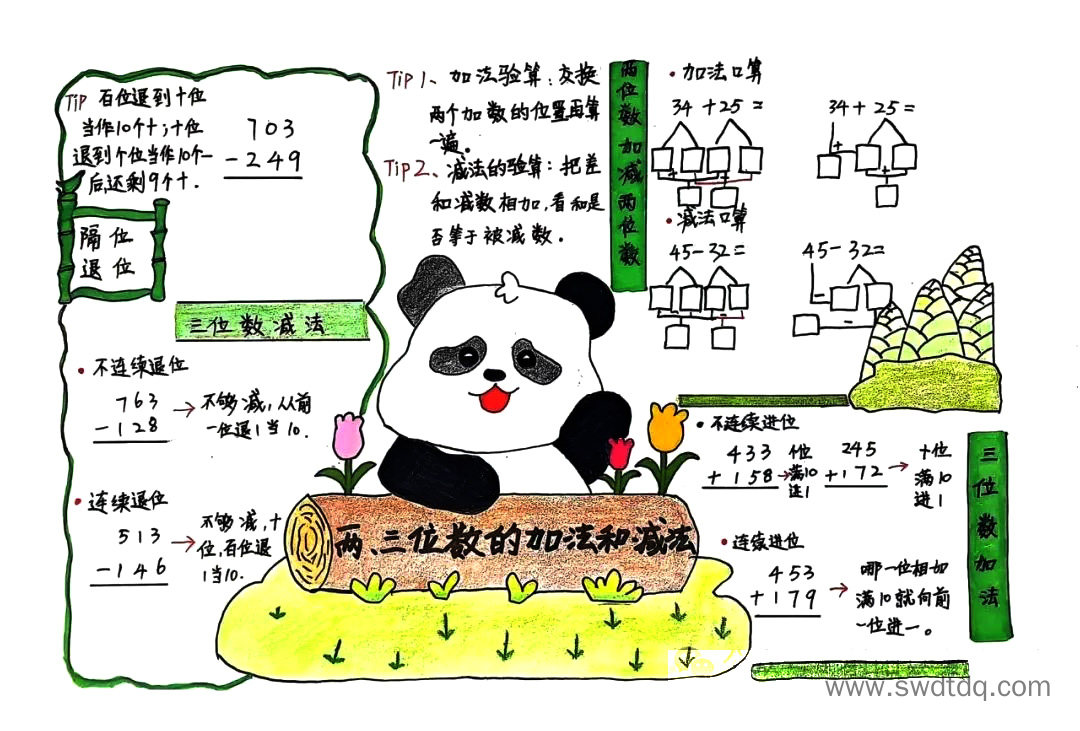 Tip 百位退到十位
当作10个十;十位
退到个位当作10个一
后,还剩9个十.
703
-249
隔位
退位
三位数减法
·不连续退位
763
-128
→不够减,从前
一位退1当10.
·连续退位
513
-146
→不够减,十
位,百位退
1当10.
Tip 1、加法验算:交换
两个加数的位置再算
一遍。
Tip 2、减法的验算:把差
和减数相加,看和是
否等于被减数.
两位数加减两位数
·加法口算
34+25=
34+25=
+
+
+
+
·减法口算
45-32=
45-32=
-
-
-
-
两、三位数的加法和减法
·不连续进位
433
+158
→个位
满10
进1
245
+172
→十位
满10
进1
·连续进位
453
+179
→哪一位相加
满10就向前
一位进一。
三位数加法
www.swdtdq.com